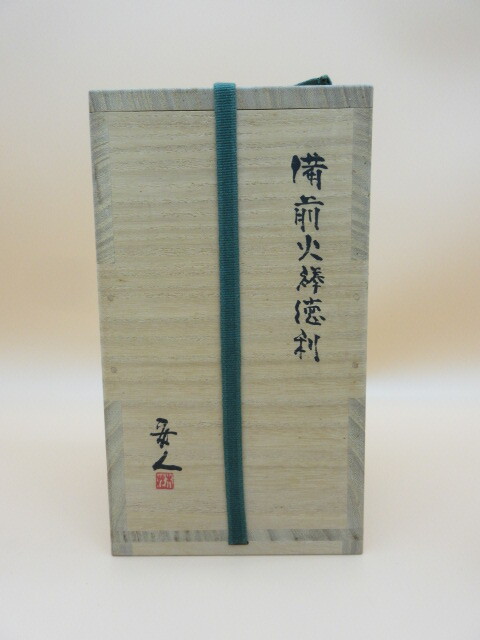 備前火襷徳利
安人